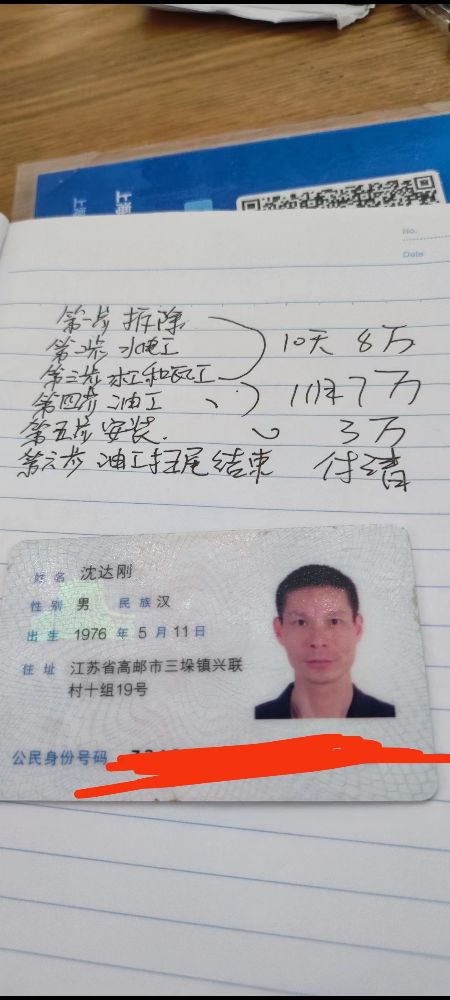 No.
Date
第一步 拆除
第二步 水电工
第三步 木工和瓦工
10天 8万
第四步 油工
1月7万
第五步 安装.
3万
第六步 油工扫尾结束 付清
姓名 沈达刚
性别 男 民族 汉
出生 1976 年 5 月 11 日
住址 江苏省高邮市三垛镇兴联
村十组19号
公民身份号码